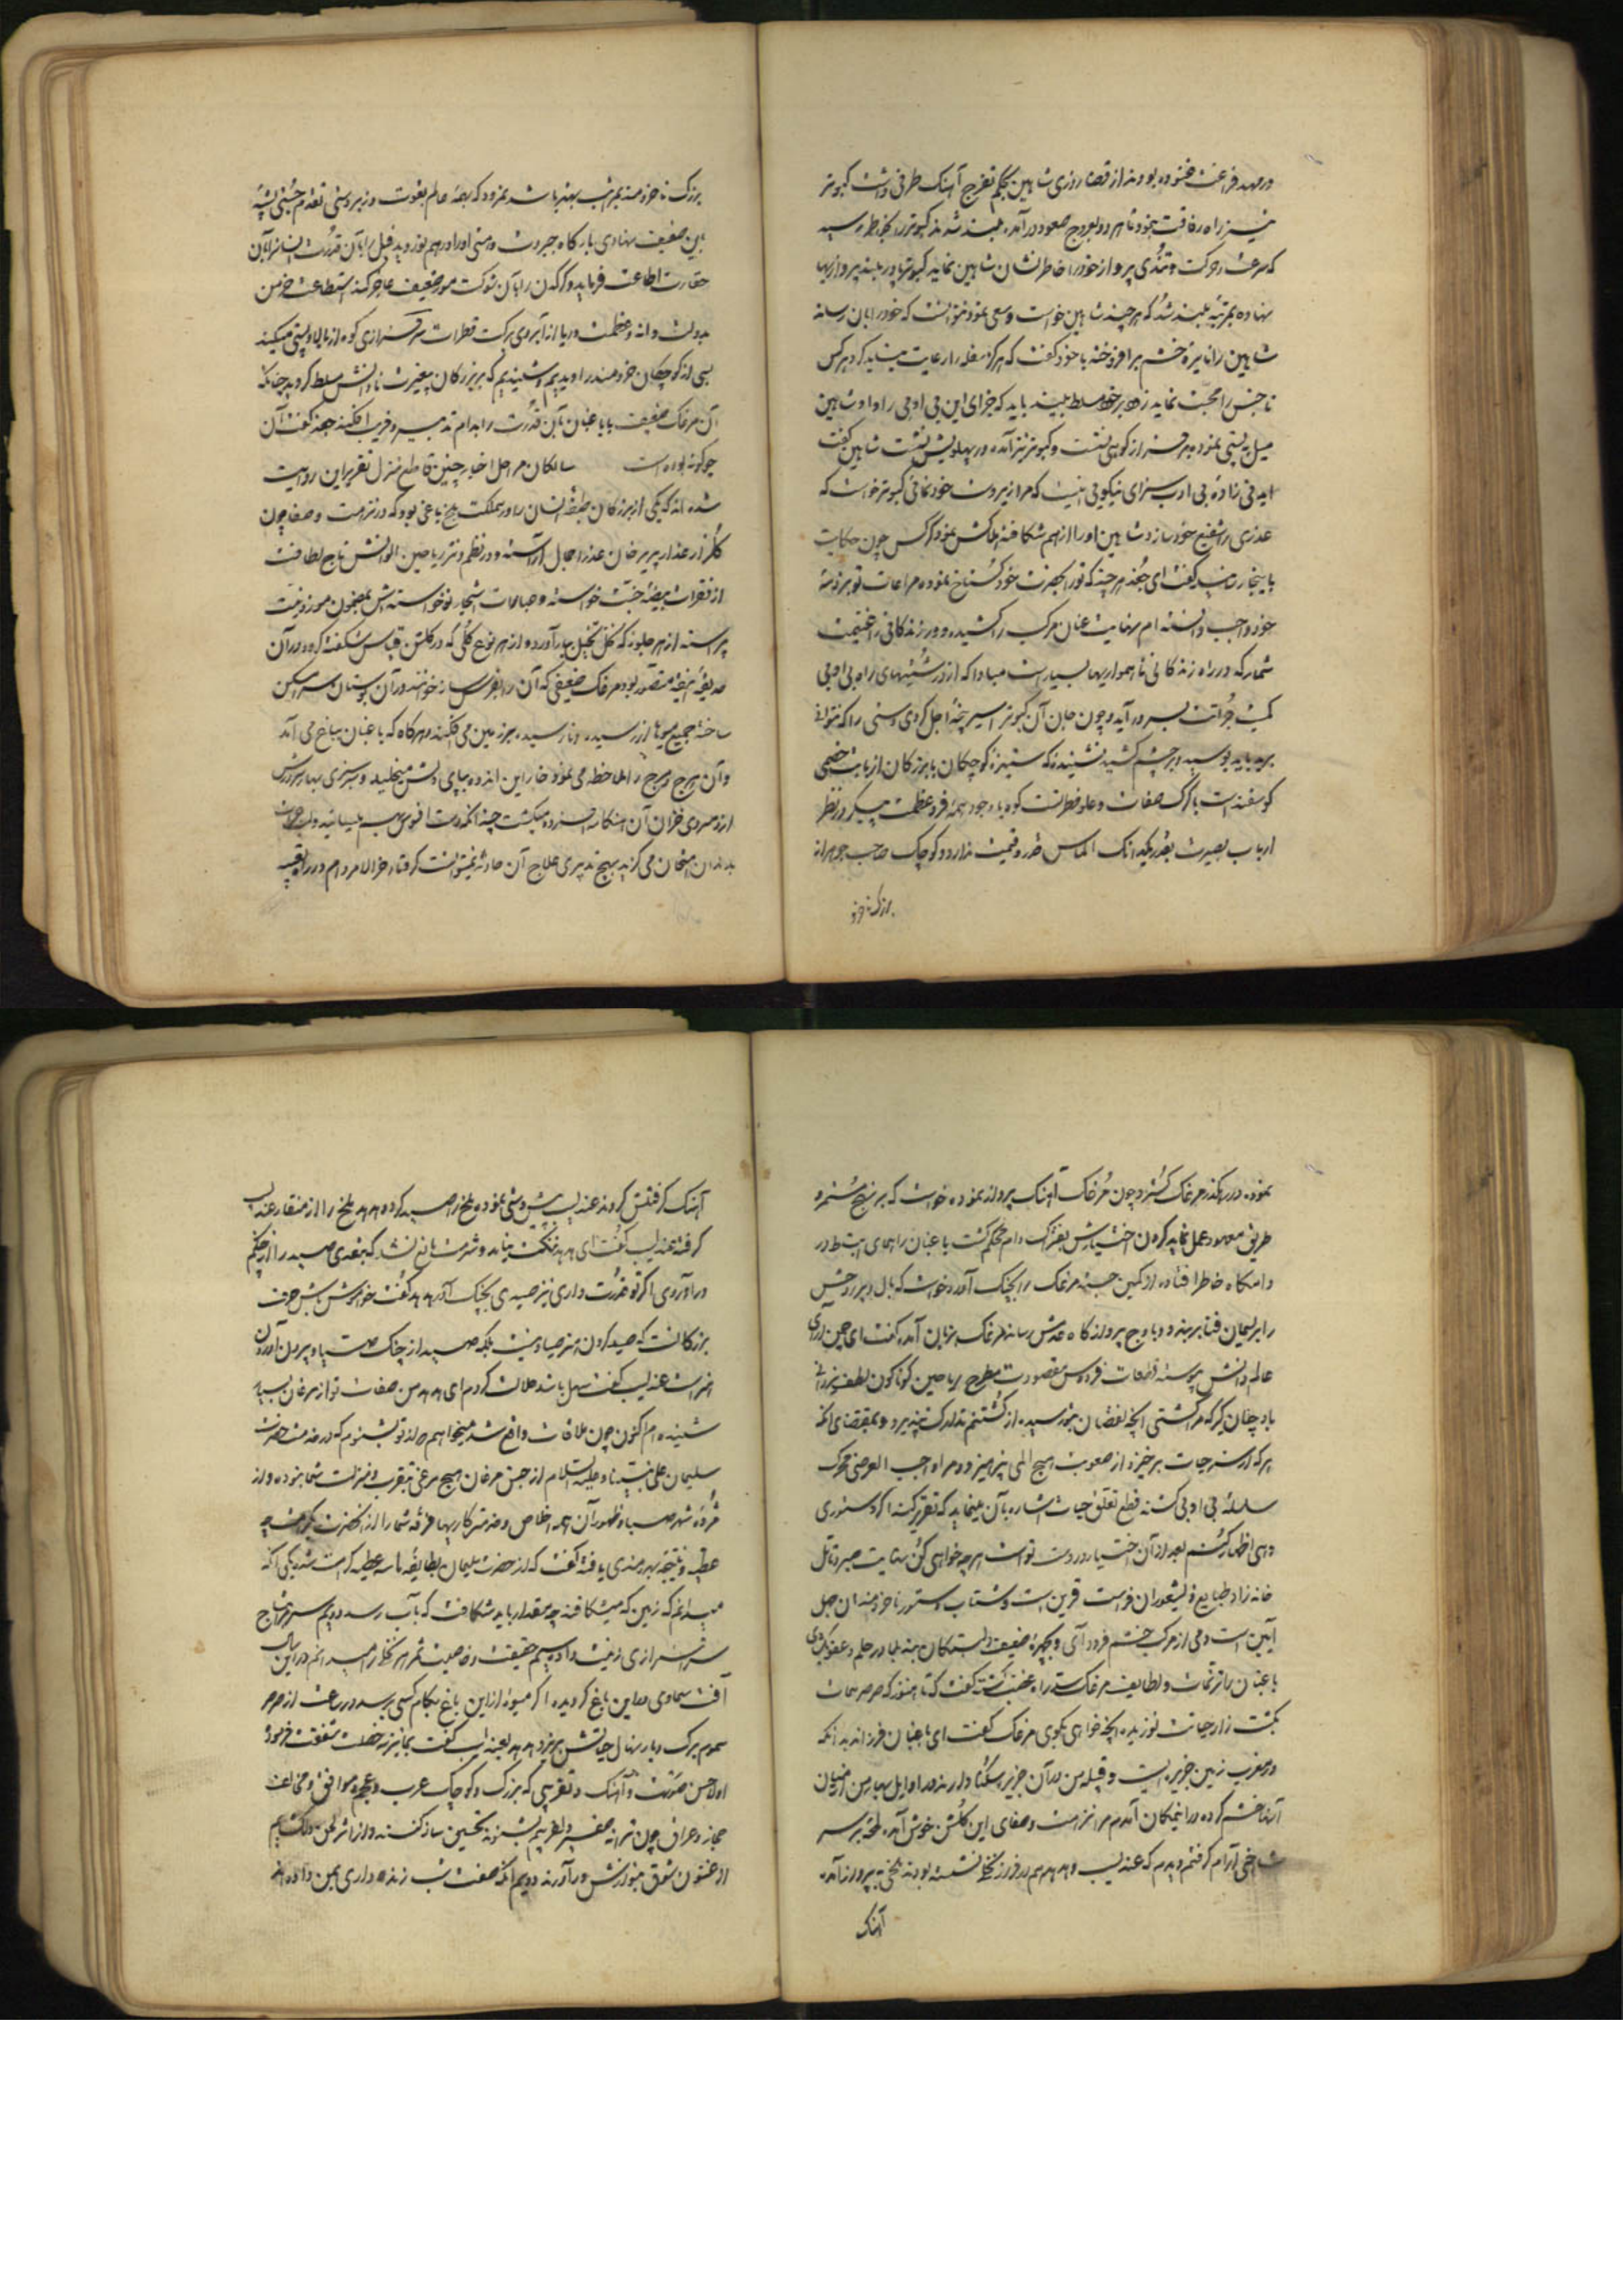 در مهد فراغت غنوده بودند از قضا روزی شاهین بحکم تفرج آهنک طرفی داشت کبوتر
نیز راه رفاقت پیمود تا هر دو بعروج صعود در آمده بلند شدند کبوتر را بخاطر رسید
که سرعت حرکت و تندی پرواز خود را خاطرنشان شاهین نماید کبوتر پا در بلند پروازیها
نهاده بمرتبه بلند شد که هر چند شاهین خواست و سعی نمود نتوانست که خود را بان رساند
شاهین را نایره خشم برافروخته با خود کفت که هر کز سفله را رعایت نباید کرد هر کس
ناجنس را محبت نماید زود بر خود مسلط بیند باید که جزای این بی ادبی را داد شاهین
میل به پستی نموده بر فراز کوهی نشست و کبوتر نیز آمده در پهلویش نشست شاهین کفت
ای دنی زاده بی ادب سزای نیکویی اینست که مرا زیردست خود نمائی کبوتر خواست که
عذری را شفیع خود سازد شاهین او را از هم شکافته هلاکش نمود کرکس چون حکایت
باینجا رسانید کفت ای جغد هر چند که تو را بحضرت خود کستاخ نموده مراعات تو بر ذمه
خود واجب دانسته ام نهایت عنان مرکب را کشیده دور زندکانی را غنیمت
شمار که در راه زندکانی ناهمواریها بسیار است مبادا که از درشتیهای راه بی ادبی
کمیت جراتت بسر در آید و چون جان آن کبوتر اسیر پنجه اجل کردی دستی را که نتوانی
برید باید بوسید و بر چشم کشید نشنیدی که ستیزه کوچکان با بزرکان از بابت خصمی
کوسفند است با کرک صفات و علو فطرت کوه با وجود همه فر و عظمت پیکر در نظر
ارباب بصیرت بقدر یکدانک الماس قدر و قیمت ندارد و کوچک صاحب جوهر از
بزرک ناخرد
بزرک ناخردمند بمراتب بهتر باشد نمرود که همه عالم بقوت و زبردستی تقدم جستی پشه
باین ضعیف نهادی بارکاه جبروت و منی او را درهم نوردید فیل را بآن قدرت انسان بآن
حقارت اطاعت فرماید و کرکدن را بآن شوکت مور ضعیف عاجز کند استطاعت خرمن
بدولت دانه و عظمت دریا از آبروی برکت قطرات سرفرازی کوه از بالادستی میکند
بسی از کوچکان خردمند را دیدیم و شنیدیم که بر بزرکان بی دانش مسلط کردید چنانکه
آن مرغک ضعیف باباغبان بآن قدرت را بدام تدبیر و فریب افکند جغد کفت آن
چکونه بوده است سالکان مراحل اخبار چنین قاطع منزل تقریر این روایت
شده اند که یکی از بزرکان طبقه انسان را در مملکت بلخ باغی بود که در نزاهت و صفا چون
کلزار عذار پریرخان عذرا جمال آراسته و در نظم و نثر ریاحین الوانش تاج لطافت
از فقرات بیضه جنت خواسته و عبارات اشجار نوخواسته اش بمضمون موزونیت
پیراسته از هر جلوه که کل تخیل ببار آورد و از هر نوع کلی که در کلشن قیاس شکفته کردد در آن
حدیقه انیقه متصور بود مرغک ضعیفی که آن را نغمه ساز خوانند در آن بوستان سرا مسکن
ساخته جمیع میوها از رسیده و نارسیده بر زمین می افکند و هر کاه که باغبان بباغ می آمد
و آن هرج و مرج را ملاحظه می نمود خار این اندوه بپای دلش میخلید و سرسبزی بهار سرورش
از دمسردی خزان آن افسرده میکشت چند انکه دست افسوس بهم میسائید و لب حسرت
بدندان می کزید بهیچ تدبیری علاج آن حادثه نمیتوانست کرفتار اخر الامر دام در راه
نموده در رهکذر مرغک کسترد چون مرغک آهنک پرواز نموده خواست که بر نهج مستمر و
طریق معهود عمل نماید کردن اختیارش بفتراک دام محکم کشت باغبان را همای انبساط در
دامکاه خاطر افتاده از کمین جسته مرغک را بچنک آورد خواست که بال و پر روحش
را بریسمان فنا بر بندد و باوج پرواز کاه عدمش رساند مرغک بزبان آمده کفت ای چمن آرای
عالم دانش پیوسته قطعات فردوس مقصودت مطرح ریاحین کوناکون لطف یزدانی
باد چنان کیر که مرا کشتی آنچه نقصان بتو رسیده از کشتنم تدارک نپذیرد و بمقتضای آنکه
هر که از سر حیات برخیزد از صعوبت هیچ المی نپرهیزد و مرا واجب العرضی محرک
سلسله بی ادبی کشته قطع تعلق حیات اشاره بآن مینماید که تقریر کند اکر دستوری
دهی اظهار کنم بعد از آن اختیار در دست تو است هر چه خواهی کن بدایت صبر و تأمل
خانه زاد طبایع ذیشعوران فراست قرین است و شتاب دستور ناخردمندان جهل
آیین است دمی از مرکب خشم فرود آی و بچهره ضعیف دلشکسته بنده در حلم و عفو
باغبان ترنمات و لطایف مرغک سد راه غضب کشته کفت که تا هنوز که صرصر ممات
بکشت زار حیاتت نوزیده آنچه خواهی بکوی مرغک کفت ای باغبان فرزانه بدانکه
در مغرب زمین جزیره ایست و قبیله من در آن جزیره سکنا دارند در اوایل بهار من از ایشان
آزرده خشم کرده در اینمکان آمدم مرا نزاهت و صفای این کلشن خوش آمد لمحه بر سر
شاخی آرام کرفتم دیدم که عندلیب و هدهد هم بر فراز نخلی نشسته بودند ملخی بپرواز آمده
آهنک
آهنک کرفتنش کردند عندلیب پیش دستی نموده ملخ را صید کرده هدهد ملخ را از منقار عندلیب
کرفته عندلیب کفت ای هدهد ننکت نیاید و شرمت مانع نشد که بتعدی صید را از چنکم
در آوردی اکر تو قدرت داری نیز صیدی بچنک آر هدهد کفت خاموش باش حرف
بزرکانست که صید کردن هنر صیاد نیست بلکه صید از چنک صیاد بیرون آوردن
هنر است عندلیب کفت سهل باشد حلالت کردم ای هدهد من صفات تو از مرغان بسیار
شنیده ام اکنون چون ملاقات واقع شد میخواهم از تو بشنوم که در خدمت حضرت
سلیمان علی نبینا و علیه السلام از جنس مرغان هیچ مرغی بتقرب و منزلت شما نبوده و از
مژده شهر سبا و ظهور آن همه اخلاص و خدمتکاریها فرقه شما را از آنحضرت بکدام
عطیه و نتیجه بهره مندی یافته کفت که از حضرت سلیمان بطایفه ما سه عطیه کرامت شد یکی آنکه
میدانم که زمین که میشکافند چه مقدار باید شکافت که بآب رسد دویم سرفرازی تاج
سرافرازی زینت داد سیم حقیقت و خاصیت ثمر هر نخل را میدانم در این سال
آفت سماوی باین باغ کردیده اکر میوه از این باغ بکام کسی برسد در ساعت از صرصر
سموم برک و بار نهال حیاتش بریزد هدهد بعندلیب کفت بما نیز نه خصلت شفقت فرمود
اول حسن صوتست و آهنک و تقریبی که بزرک و کوچک عرب و عجم و موافق و مخالف
حجاز و عراق چون ترانه صفیر دلفریبم بشنوند تحسین ساز کنند و از اثر لحن دلکشم
ارغنون شوق بنوازش در آورند دویم آنکه صفت شب زنده داری بمن داده اند